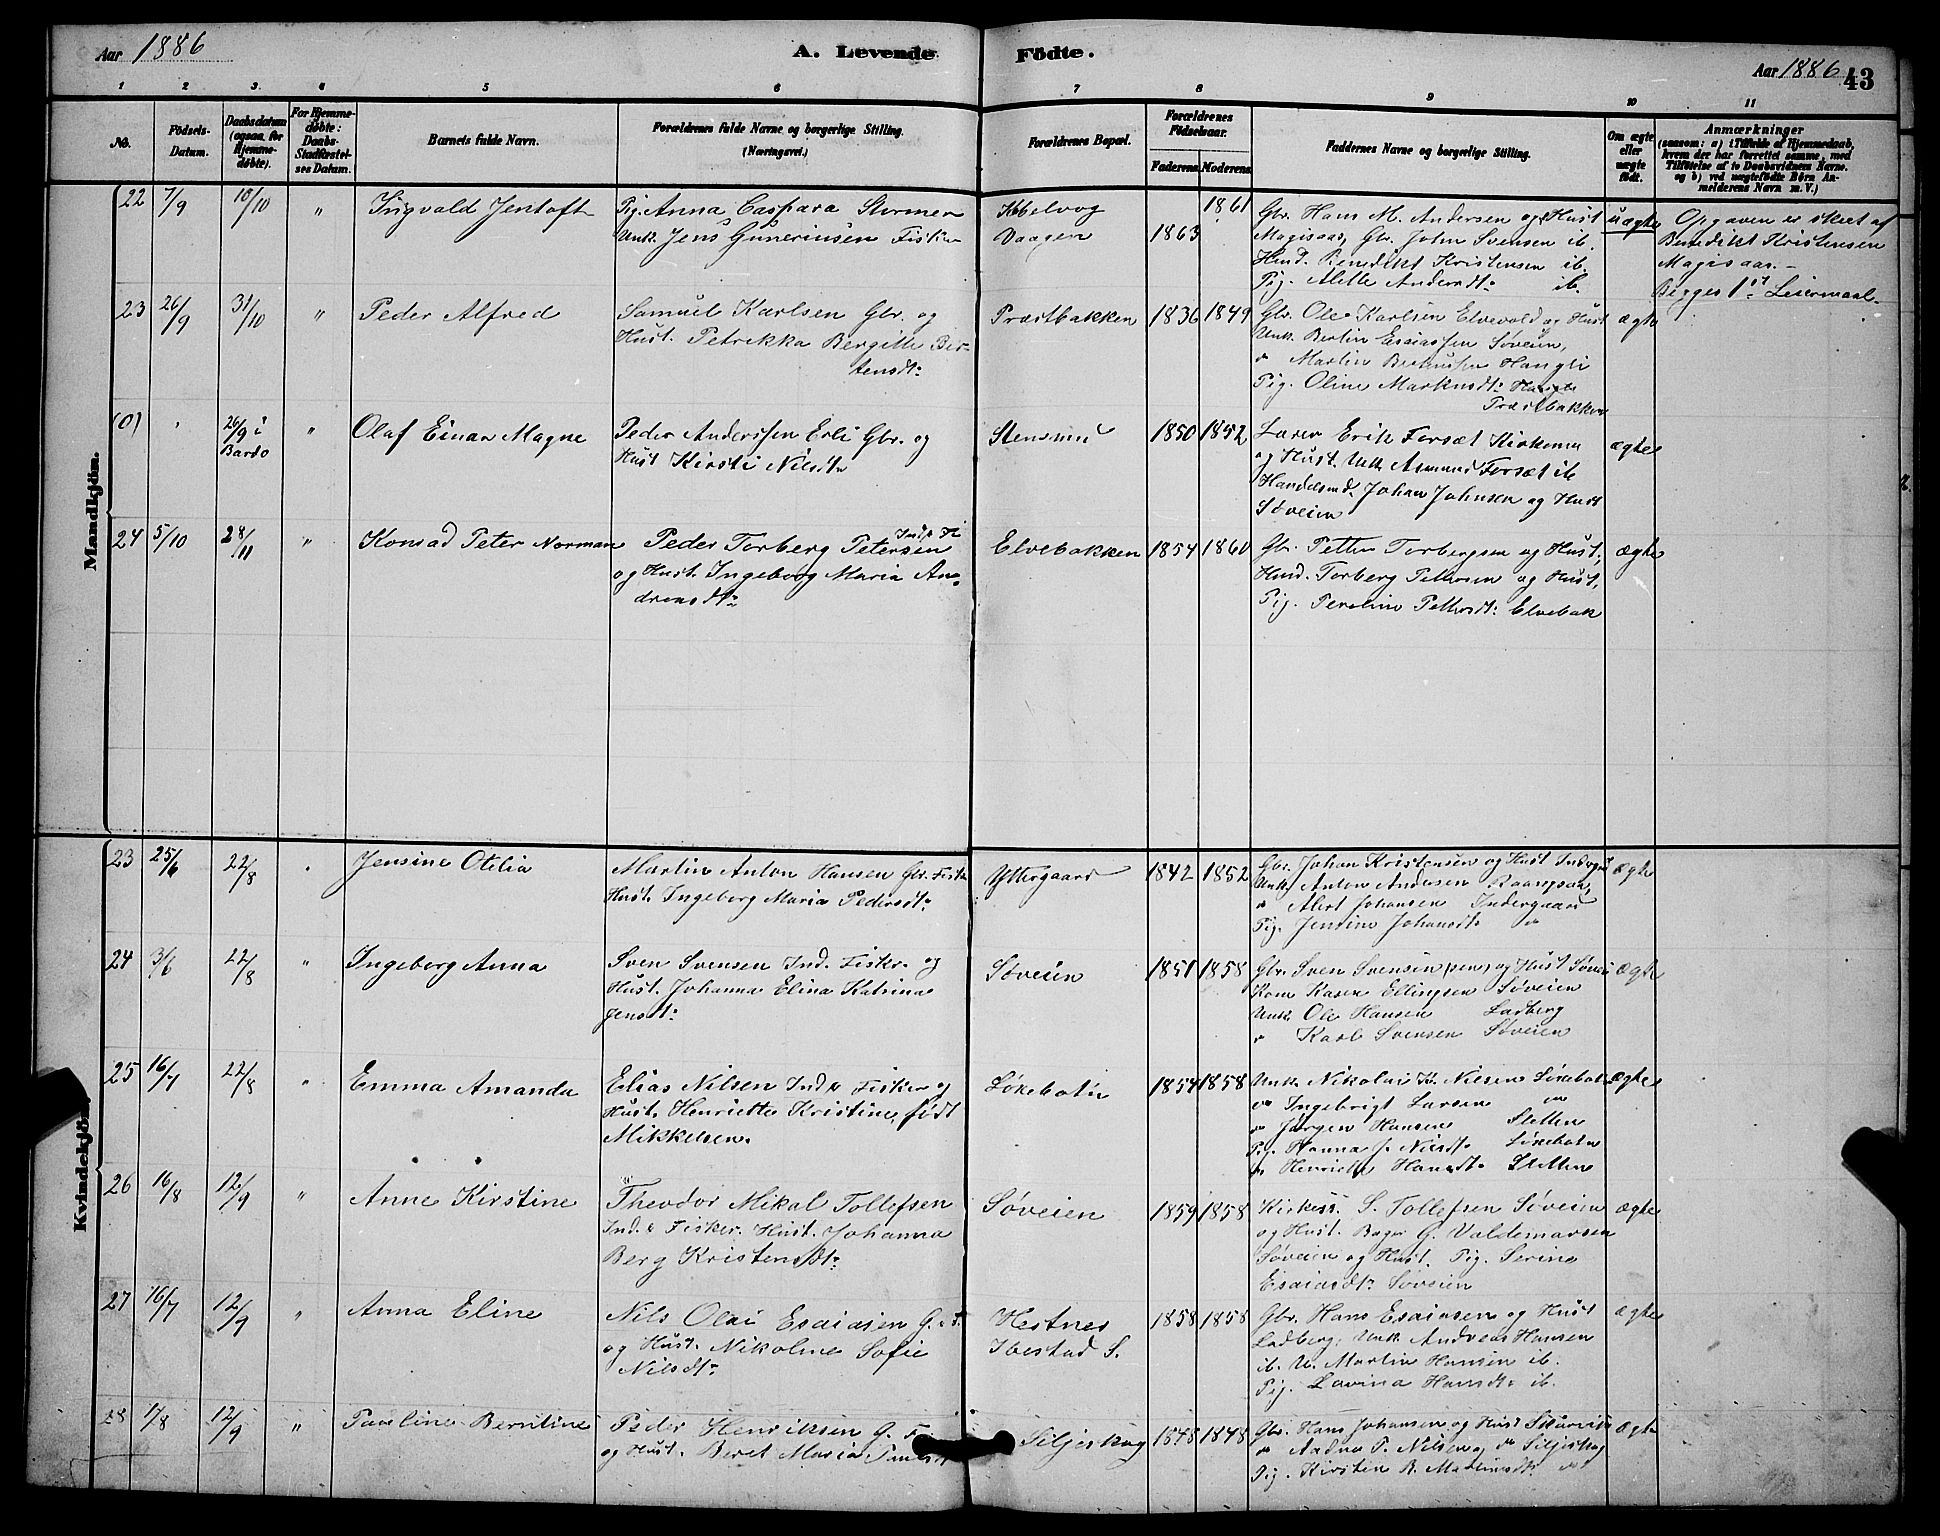 Aar 1886
A. Levende Födte.
Aar 1886 43
1 2 3. 4 5 6 7 8 9 10 11
No.
Födsels-Datum.
Daabsdatum (ogsaa for Hjemmedöbte).
For Hjemmedøbte: Daabs-Stadfæstelses Datum.
Barnets fulde Navn.
Forældrenes fulde Navne og borgerlige Stilling. (Næringsvei.)
Forældrenes Bopæl.
Forældrenes Födselsaar.
Faderens. Moderens.
Faddernes Navne og borgerlige Stilling.
Om ægte eller uægte født.
Anmærkninger
(saasom: a) i Tilfælde af Hjemmedaab,
hvem der har forrettet samme, med
Tilføielse af to Daabsvidners Navne.
og b) ved uægtefødte Börn Anmelderens Navn m. V.)
Mandkjön.
22 7/9 10/10 " Ingvald Jentoft
Pig. Anna Caspara Stormer
Unk. Jens Guneriusen Fisker
Kobbelvog
Vaagen
1863 1861
Gbr. Hans M. Andersen og Hust
Magisaas, Gbr. John Svensen ib.
Husd. Benedikt Kristensen ib.
Pig. Alette Andersdt: ib.
uægte
Opgaven er skeet af
Benedikt Kristensen
Magisaas.-
Begges 1st Leiermaal.
23 26/9 31/10 " Peder Alfred
Samuel Karlsen Gbr. og
Hust. Petrikka Bergitte Bertensdt:
Præstbakken 1836 1849
Gbr. Ole Karlsen Elvevold og Hust
Unk. Bertin Esaiassen Søveien,
" Martin Hangli
Pig. Oline
Præstbakken
ægte
(0) " 26/9 i Bardo " Olaf Einar Magne
Peder Anderssen Erli Gbr. og
Hust Kirsti Nilsdt:
1850 1852
Lærer Erik Forsæt Kirkemo
og Hust. Unk. Forsæt ib
Handelsmd. Johan Johnsen og Hust
Søveien
ægte
24 5/10 28/11 " Konrad Peter Norman
Peder Torberg Petersen Inds. Fi
og Hust. Ingeborg Maria Andreasdt:
Elvebakken 1854 1860
Gbr. Petter Torbergsen og Hust,
Husd. Torberg Pettersen og Hust,
Pig. Peroline Pettersdt: Elvebak
ægte
Kvindekjön.
23 25/6 22/8 " Jensine Otelia
Martin Anton Hansen Gbr. Fisk
Hust. Ingeborg Maria Pedersdt:
Yttergaard 1842 1852
Gbr. Johan Kristensen og Hust
Unk. Anton Andersen
" Albert Johansen Indergaard
Pig. Jensine Johansdt: "
ægte
24 3/6 22/8 " Ingeborg Anna
Sven Svensen Ind. Fisker. og
Hust. Johanna Elina Katrina
Jensdt:
Søveien 1851 1858
Gbr. Sven Svensen (sen) og Hust Søvei
Kone Karen Ellingsen Søveien
Unk. Ole Hansen Ladberg
" Karl Svensen Søveien
ægte
25 16/7 22/8 " Emma Amanda
Elias Nilsen Ind & Fisker og
Hust. Henriette Kristine, født
Mikkelsen.
Løksebotn 1854 1858
Unk. Nikolai K. Nilsen Løksebotn
" Ingebrigt Larsen "
" Jørgen Hansen Sletten
Pig. Hanna J. Nilsdt: Løksebotn
" Henriette Hansdt: Sletten
ægte
26 16/8 12/9 " Anne Kirstine
Theodor Mikal Tollefsen
Ind. & Fisker. Hust. Johanna
Berg Kristensdt:
Søveien 1859 1858
Kirkess. S. Tollefsen Søveien
og Hust. Bager G. Valdemarsen
Søveien og Hust. Pig. Serine
Esaiasdt: Søveien
ægte
27 16/7 12/9 " Anna Eline
Nils Olai Esaiasen G. & F.
og Hust. Nikoline Sofie
Nilsdt:
Hestnes
Ibestad S.
1858 1858
Gbr. Hans Esaiasen og Hust
Ladberg, Unk. Andreas Hansen
ib. U. Martin Hansen ib.
Pig. Lavina Hansdt: ib.
ægte
28 1/8 12/9 " Pauline Berntine
Peder Henriksen G. F.
og Hust. Beret Maria Paulsd
Siljeskog 1848 1848
Gbr. Hans Johansen og Hust
" P. Nilsen og " Siljeskog
Pig. Kirsten B. "
ægte